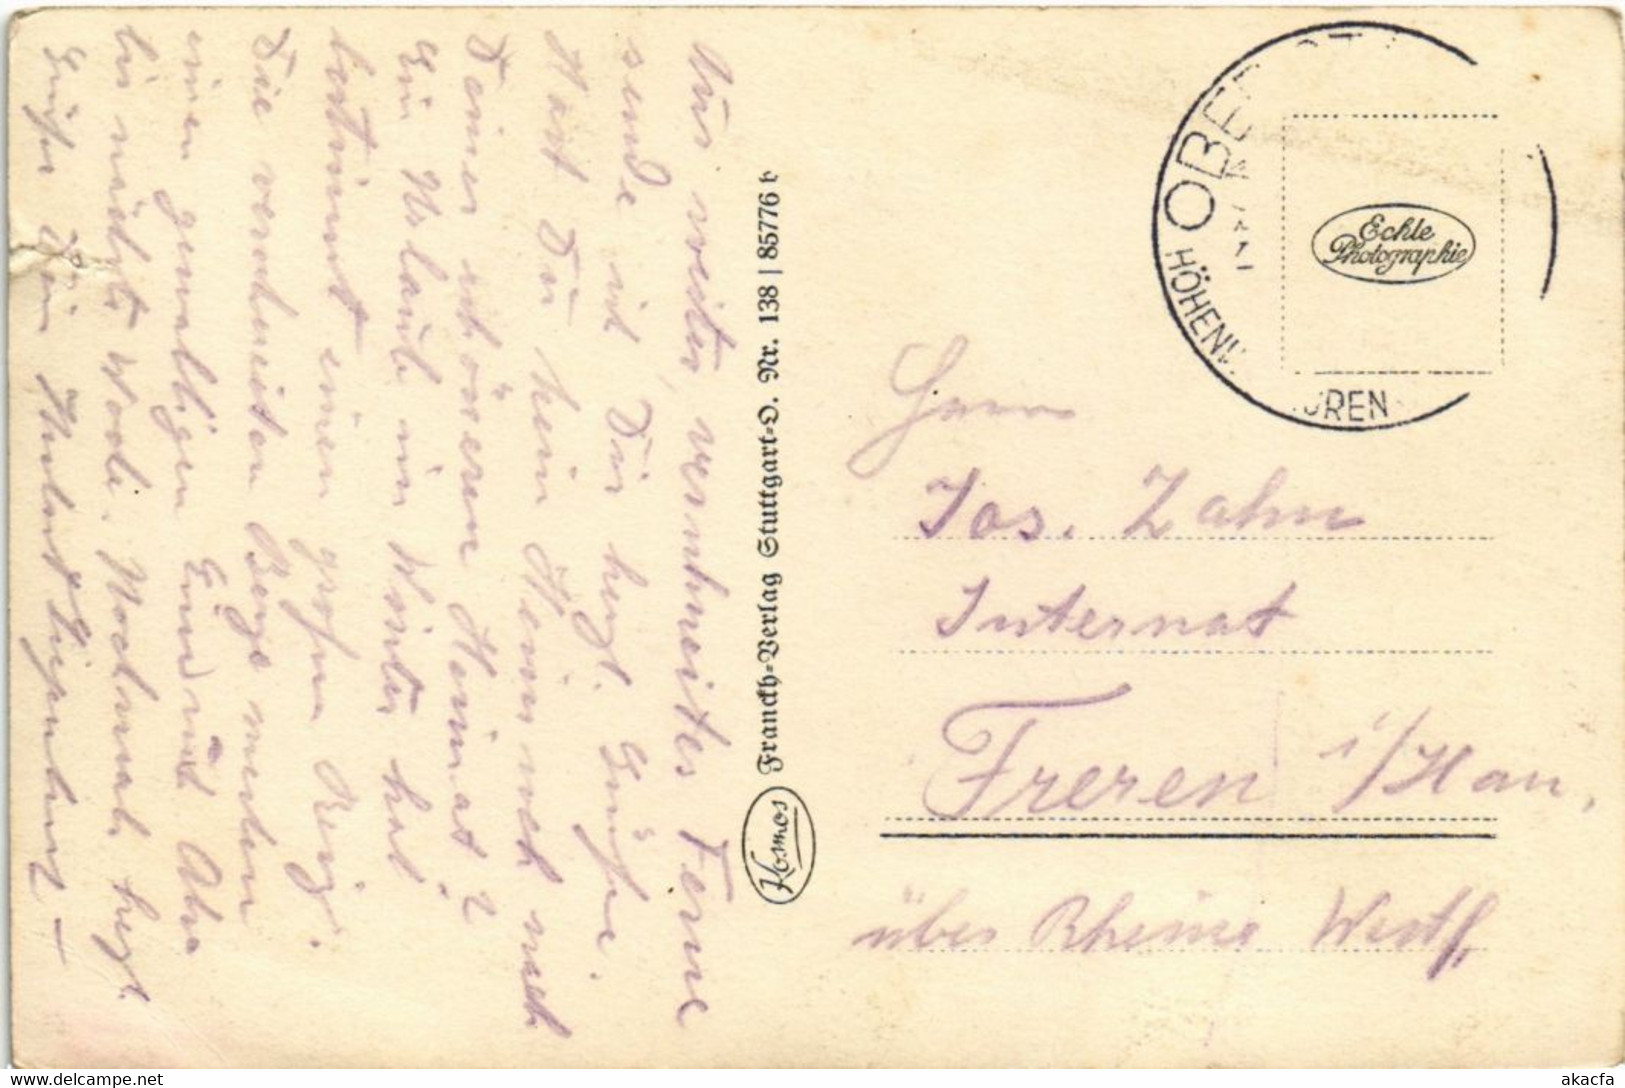 Aus weiter, verschneites Ferne
sende ich Dir herzl. Grüße.
Hast Du kein Heimweh nach
Deiner schönen Heimat?
Ein Urlaub im Winter hat
bestimmt einen großen Reiz.
Die verschneiten Berge machen
einen gewaltigen Eindruck. Aber
Nochmals herzl.
Grüße Dein
Kosmos Franckh-Verlag Stuttgart-O. Nr. 138 | 85776 b
OBER
HÖHEN
UREN
Echte
Photographie
Herrn
Jos. Zahn
Internat
Freren i/Han,
über Rheine Westf,
akacfa